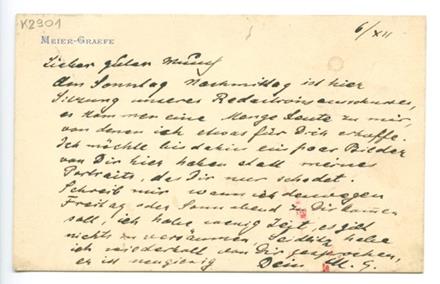 K2901
Meier-Graefe
6/XII
Lieber guter Munch
Am Sonntag Nachmittag ist hier
Sitzung unseres Redaktionsausschusses,
es kommen eine Menge Leute zu mir,
von denen ich etwas für Dich erhoffe.
Ich möchte bis dahin ein paar Bilder
von Dir hier haben statt meines
Portraits, das Dir nur schadet.
Schreib mir wann ich deswegen
Freitag oder Sonnabend zu Dir kommen
soll, ich habe wenig Zeit, es gilt
nichts zu versäumen. Seidlitz habe
ich wiederholt von Dir gesprochen,
er ist neugierig Dein M. G.